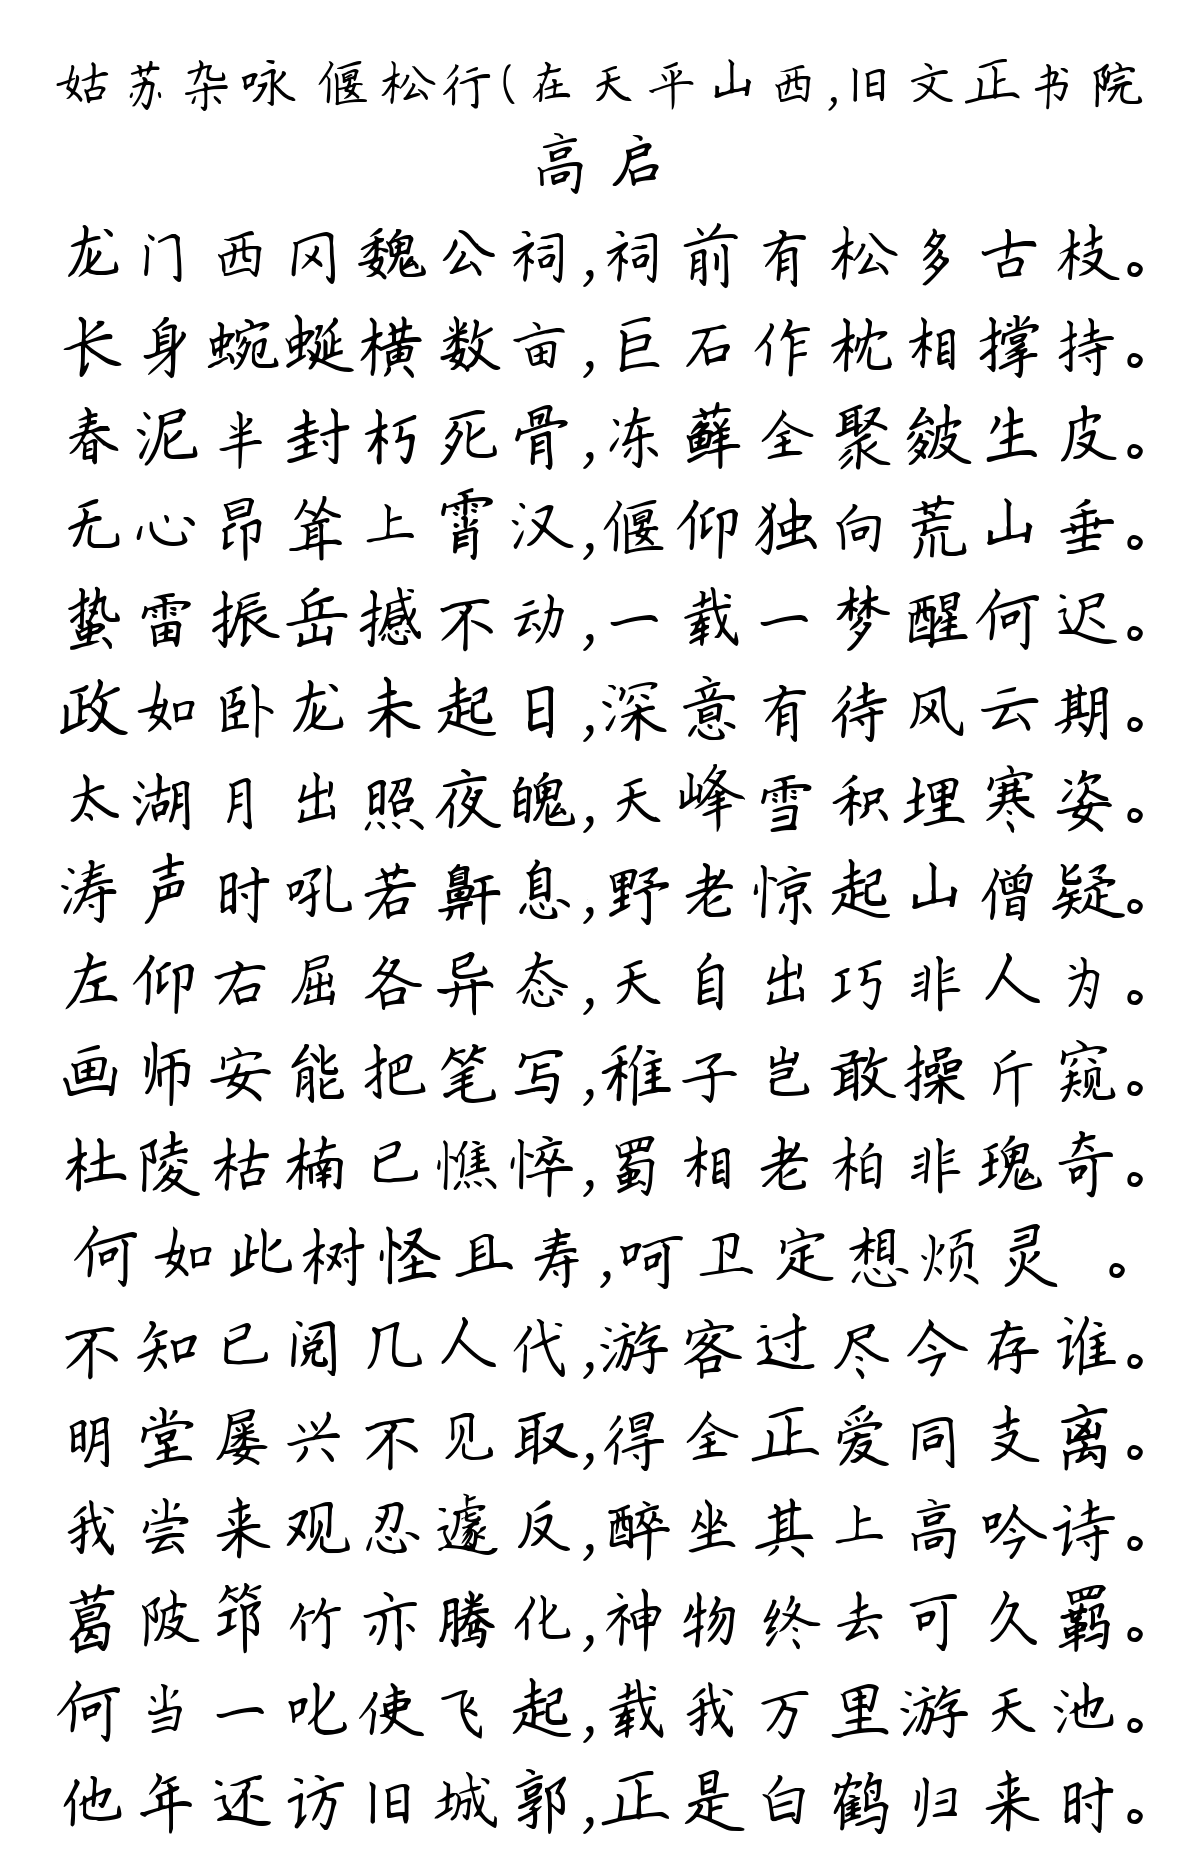 姑苏杂咏 偃松行(在天平山西,旧文正书院
高启
龙门西冈魏公祠,祠前有松多古枝。
长身蜿蜒横数亩,巨石作枕相撑持。
春泥半封朽死骨,冻藓全聚皴生皮。
无心昂耸上霄汉,偃仰独向荒山垂。
蛰雷振岳撼不动,一载一梦醒何迟。
政如卧龙未起日,深意有待风云期。
太湖月出照夜魄,天峰雪积埋寒姿。
涛声时吼若鼾息,野老惊起山僧疑。
左仰右屈各异态,天自出巧非人为。
画师安能把笔写,稚子岂敢操斤窥。
杜陵枯楠已憔悴,蜀相老柏非瑰奇。
何如此树怪且寿,呵卫定想烦灵 。
不知已阅几人代,游客过尽今存谁。
明堂屡兴不见取,得全正爱同支离。
我尝来观忍遽反,醉坐其上高吟诗。
葛陂筇竹亦腾化,神物终去可久羁。
何当一叱使飞起,载我万里游天池。
他年还访旧城郭,正是白鹤归来时。